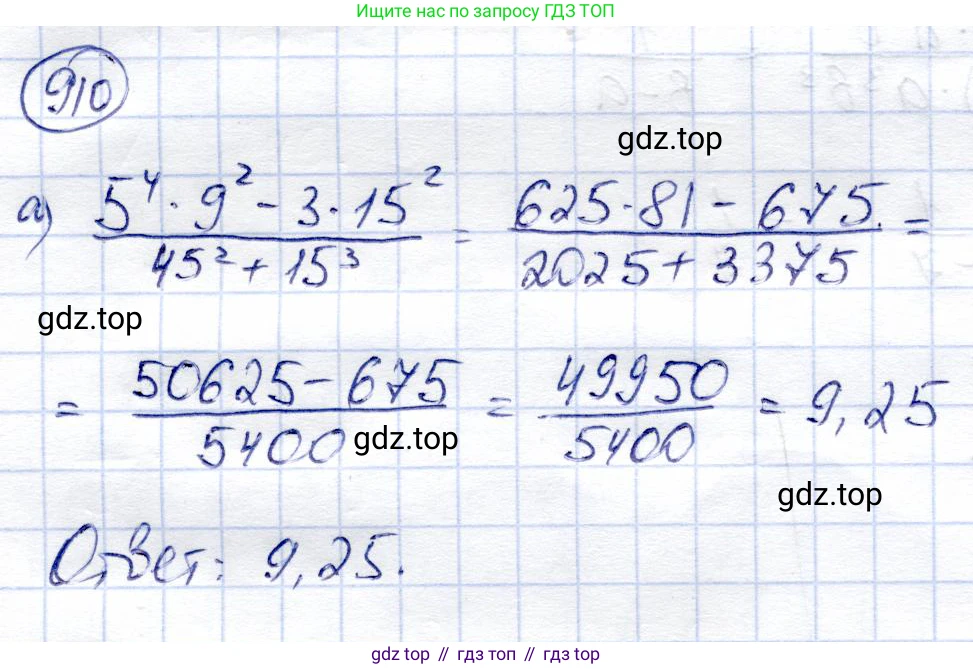 Ищите нас по запросу ГДЗ ТОП
910
gdz.top
а) (5⁴ · 9² - 3 · 15²) / (45² + 15³) = (625 · 81 - 675) / (2025 + 3375) =
gdz.top
= (50625 - 675) / 5400 = 49950 / 5400 = 9,25
gdz.top
gdz.top
Ответ: 9,25.
gdz.top // гдз топ // gdz top